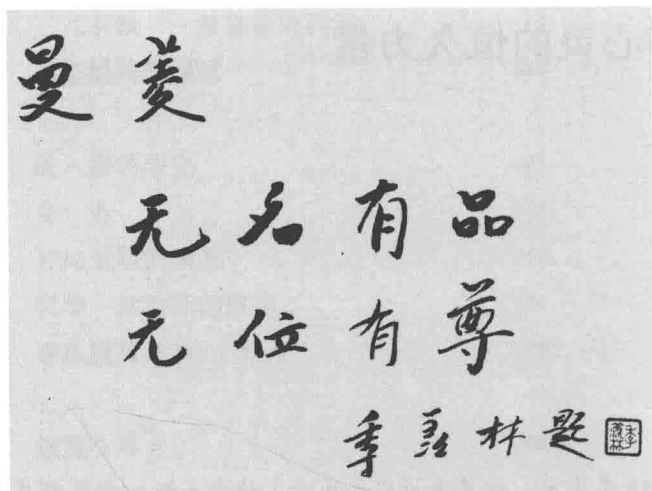 曼菱
无名有品
无位有尊
季羡林题
季羡林